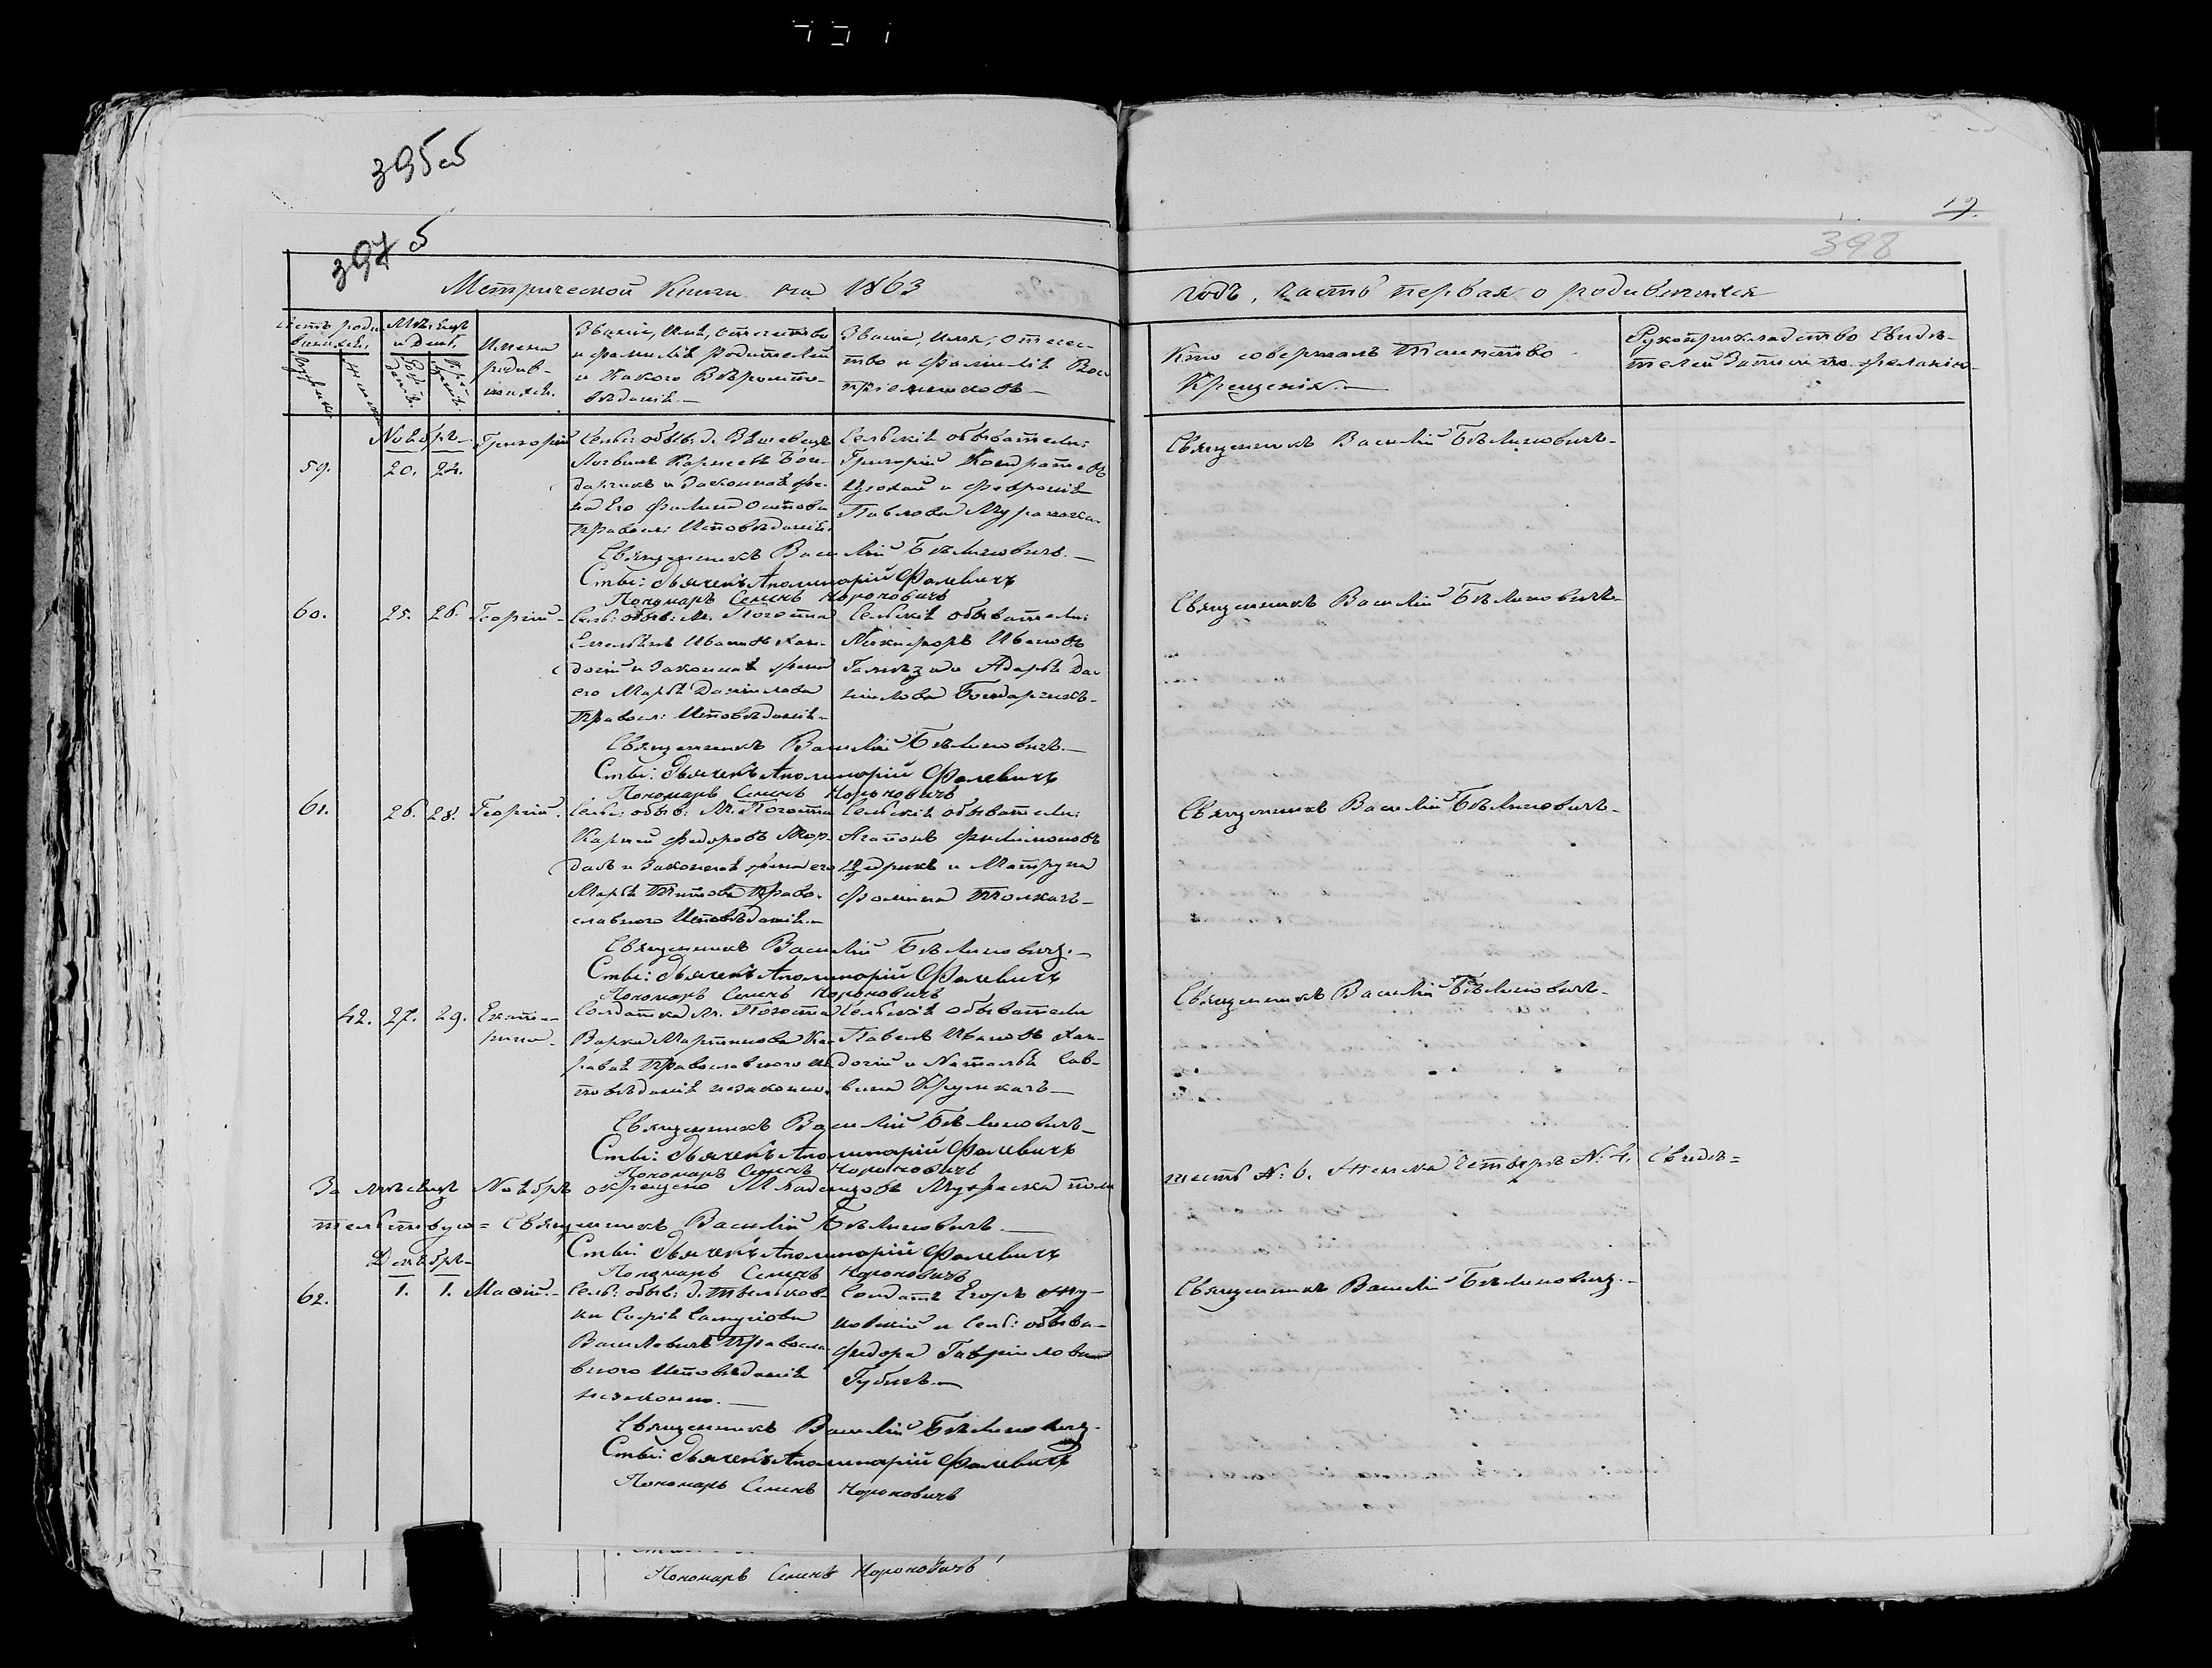 395об
397 б
19.
398
Метрической Книги на 1863
годъ, часть первая о родившихся
Счетъ роди-
вшихся.
Мѣсяцъ
и День.
Имена
родив-
шихся.
Званіе, Имя, отечество
и фамилія Родителей
и Какого Вѣроиспо-
вѣданія.—
Званіе, имя, отчес-
тво и фамилія Вос-
пріемниковъ—
Кто совершалъ Таинство
Крещенія.—
Рукоприкладство Свидѣ-
телей Записи по желанію.
Ноябрь
59. 20. 24. Григорій
Сельс: обыв: д.
Логвинъ Карнеевъ Бон-
дарчикъ и Законная же-
на Его
Правосл: Исповѣданія.
Сельскіе обыватели:
Григорій Кондратовъ
и Февронія
Павлова
Священникъ Василій Бѣлиновичъ.
Священникъ Василій Бѣлиновичъ.—
Стый: Дьячекъ Аполинарій Фалевичъ
Пономарь Семенъ Нороновичъ
60. 25. 26. Георгій.
Сельс: обыв: М. Погоста
Емельянъ Ивановъ Хан-
догій и Законная жена
его Марья Данилова
Правосл: Исповѣданія.
Сельскіе обыватели:
Никифоръ Ивановъ
и Дарья Да-
нилова Бондарчикъ.
Священникъ Василій Бѣлиновичъ.
Священникъ Василій Бѣлиновичъ.—
Стый: Дьячекъ Аполинарій Фалевичъ
Пономарь Семенъ Нороновичъ
61. 26. 28. Георгій.
Сельс: обыв: М. Погоста
Карпъ Федоровъ Мор-
даль и Законная жена его
Марья Титова Право-
славного Исповѣданія.—
Сельскіе обыватели:
Агапонъ Филимоновъ
Щедрикъ и Матруна
Фомина Толкачъ—
Священникъ Василій Бѣлиновичъ.
Священникъ Василій Бѣлиновичъ.—
Стый: Дьячекъ Аполинарій Фалевичъ
Пономарь Семенъ Нороновичъ
42. 27. 29. Екате-
рина.
Солдатка М. Погоста
Варка Мартинова Ка-
равай Православного Ис-
повѣданія незаконно.
Сельскіе обыватели
Павелъ Ивановъ Хан-
догій и Наталья Сав-
вина Крумкачъ—
Священникъ Василій Бѣлиновичъ.
Священникъ Василій Бѣлиновичъ—
Стый: Дьячекъ Аполинарій Фалевичъ
Пономарь Семенъ Нороновичъ
За мѣсяцъ Ноябрь окрещено Младенцовъ Мужеска пола
шесть №: 6. Женска четыре №: 4. Свидѣ=
тельствую= Священникъ Василій Бѣлиновичъ—
Стый: Дьячекъ Аполинарій Фалевичъ
Пономарь Семенъ Нороновичъ
Декабрь
62. 1. 1.
Сельс: обыв: д.
Софія Самуилова
Василевичъ Правосла-
вного Исповѣданія
незаконно.—
Солдатъ Егоръ Жу-
ковскій и Сельс: обыва-
Федора Гавріилова
Губичъ—
Священникъ Василій Бѣлиновичъ.
Священникъ Василій Бѣлиновичъ.
Стый: Дьячекъ Аполинарій Фалевичъ
Пономарь Семенъ Нороновичъ
Пономарь Семенъ Нороновичъ